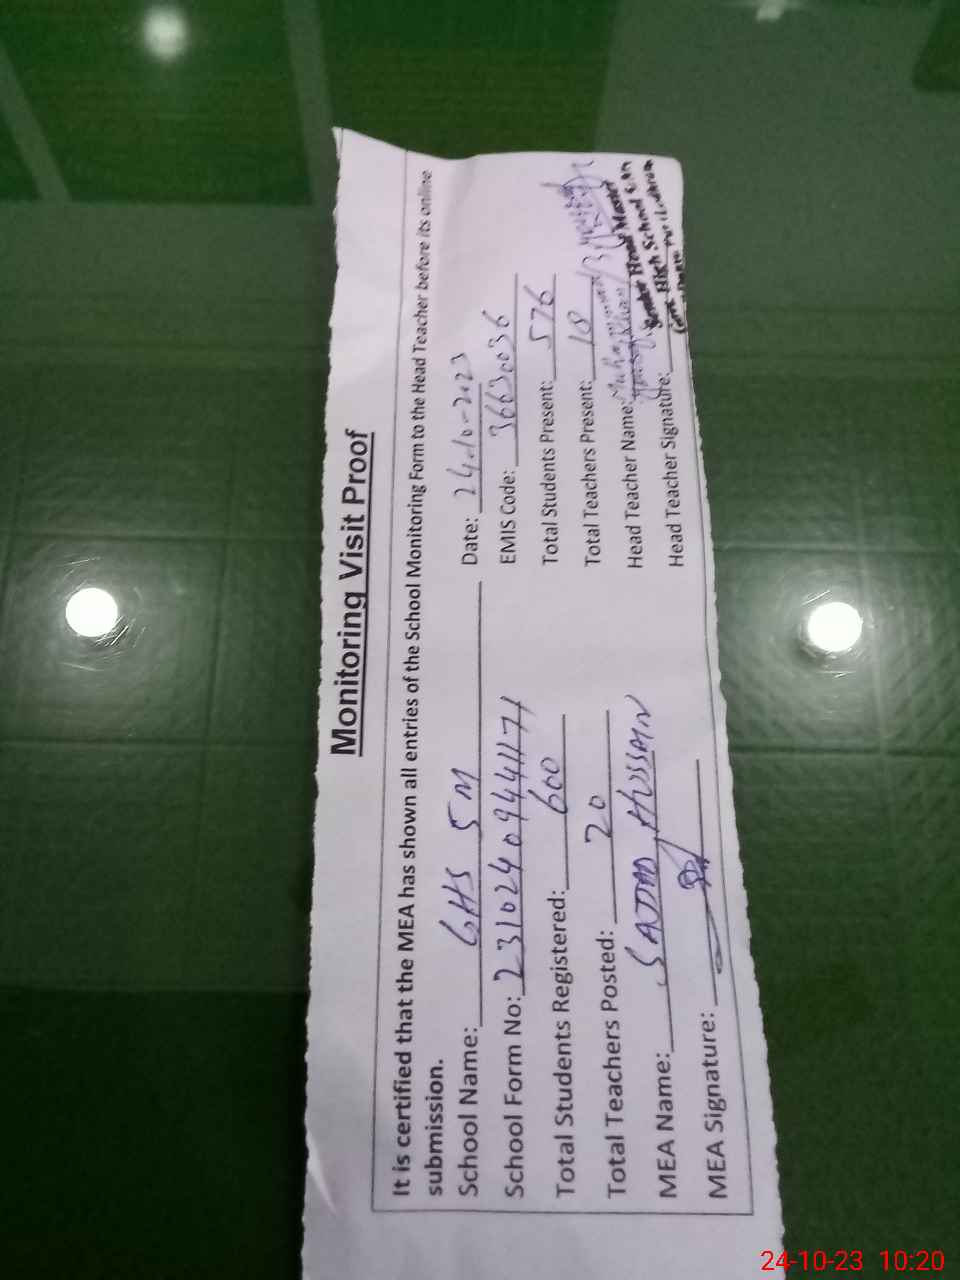 Monitoring Visit Proof
It is certified that the MEA has shown all entries of the School Monitoring Form to the Head Teacher before its online
submission.
School Name: GHS 5 M Date: 24-10-2023
School Form No: 231024094441171 EMIS Code: 36630036
Total Students Registered: 600 Total Students Present: 576
Total Teachers Posted: 20 Total Teachers Present: 18
MEA Name: SAJJAD HUSSAIN Head Teacher Name: Muhammad
MEA Signature: Head Teacher Signature:
Senior Head Master
High School 5/M
24-10-23 10:20